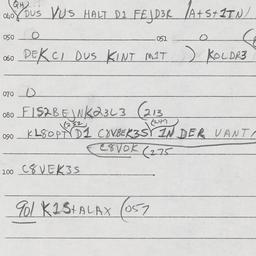 QH
040 DUS VUS HALT D1 FEJD3R /A+S+1TN/
050 O 051 O
060 DEK CI DUS KINT M1T ) KOLDR3
070 O
080 F1S2BEJNK23L3 (213
090 KL8OPT D1 C8VBEK3S IN DER VANT/
C8VOK (275
100 C8VEK3S
901 K1S+ALAX (057